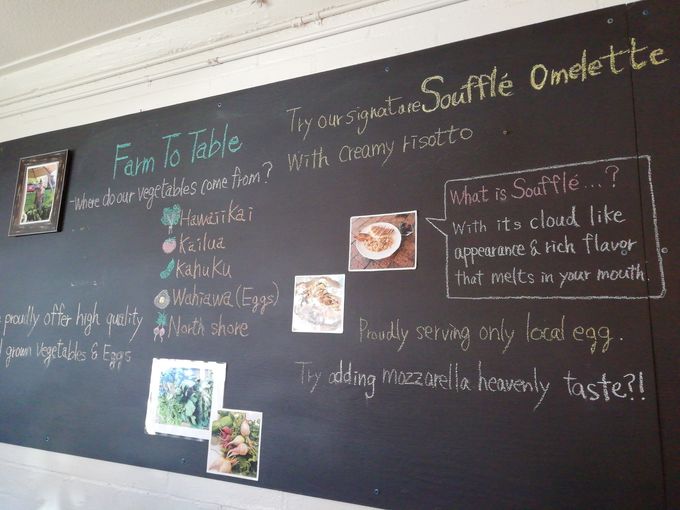 Farm To Table
-Where do our vegetables come from?
Hawaii Kai
Kailua
Kahuku
Wahiawa (Eggs)
North shore
proudly offer high quality
grown vegetables & Eggs
Try our signatare Soufflé Omelette
With creamy risotto
What is Soufflé...?
With its cloud like
appearance & rich flavor
that melts in your mouth.
Proudly serving only local egg.
Try adding mozzarella heavenly taste?!